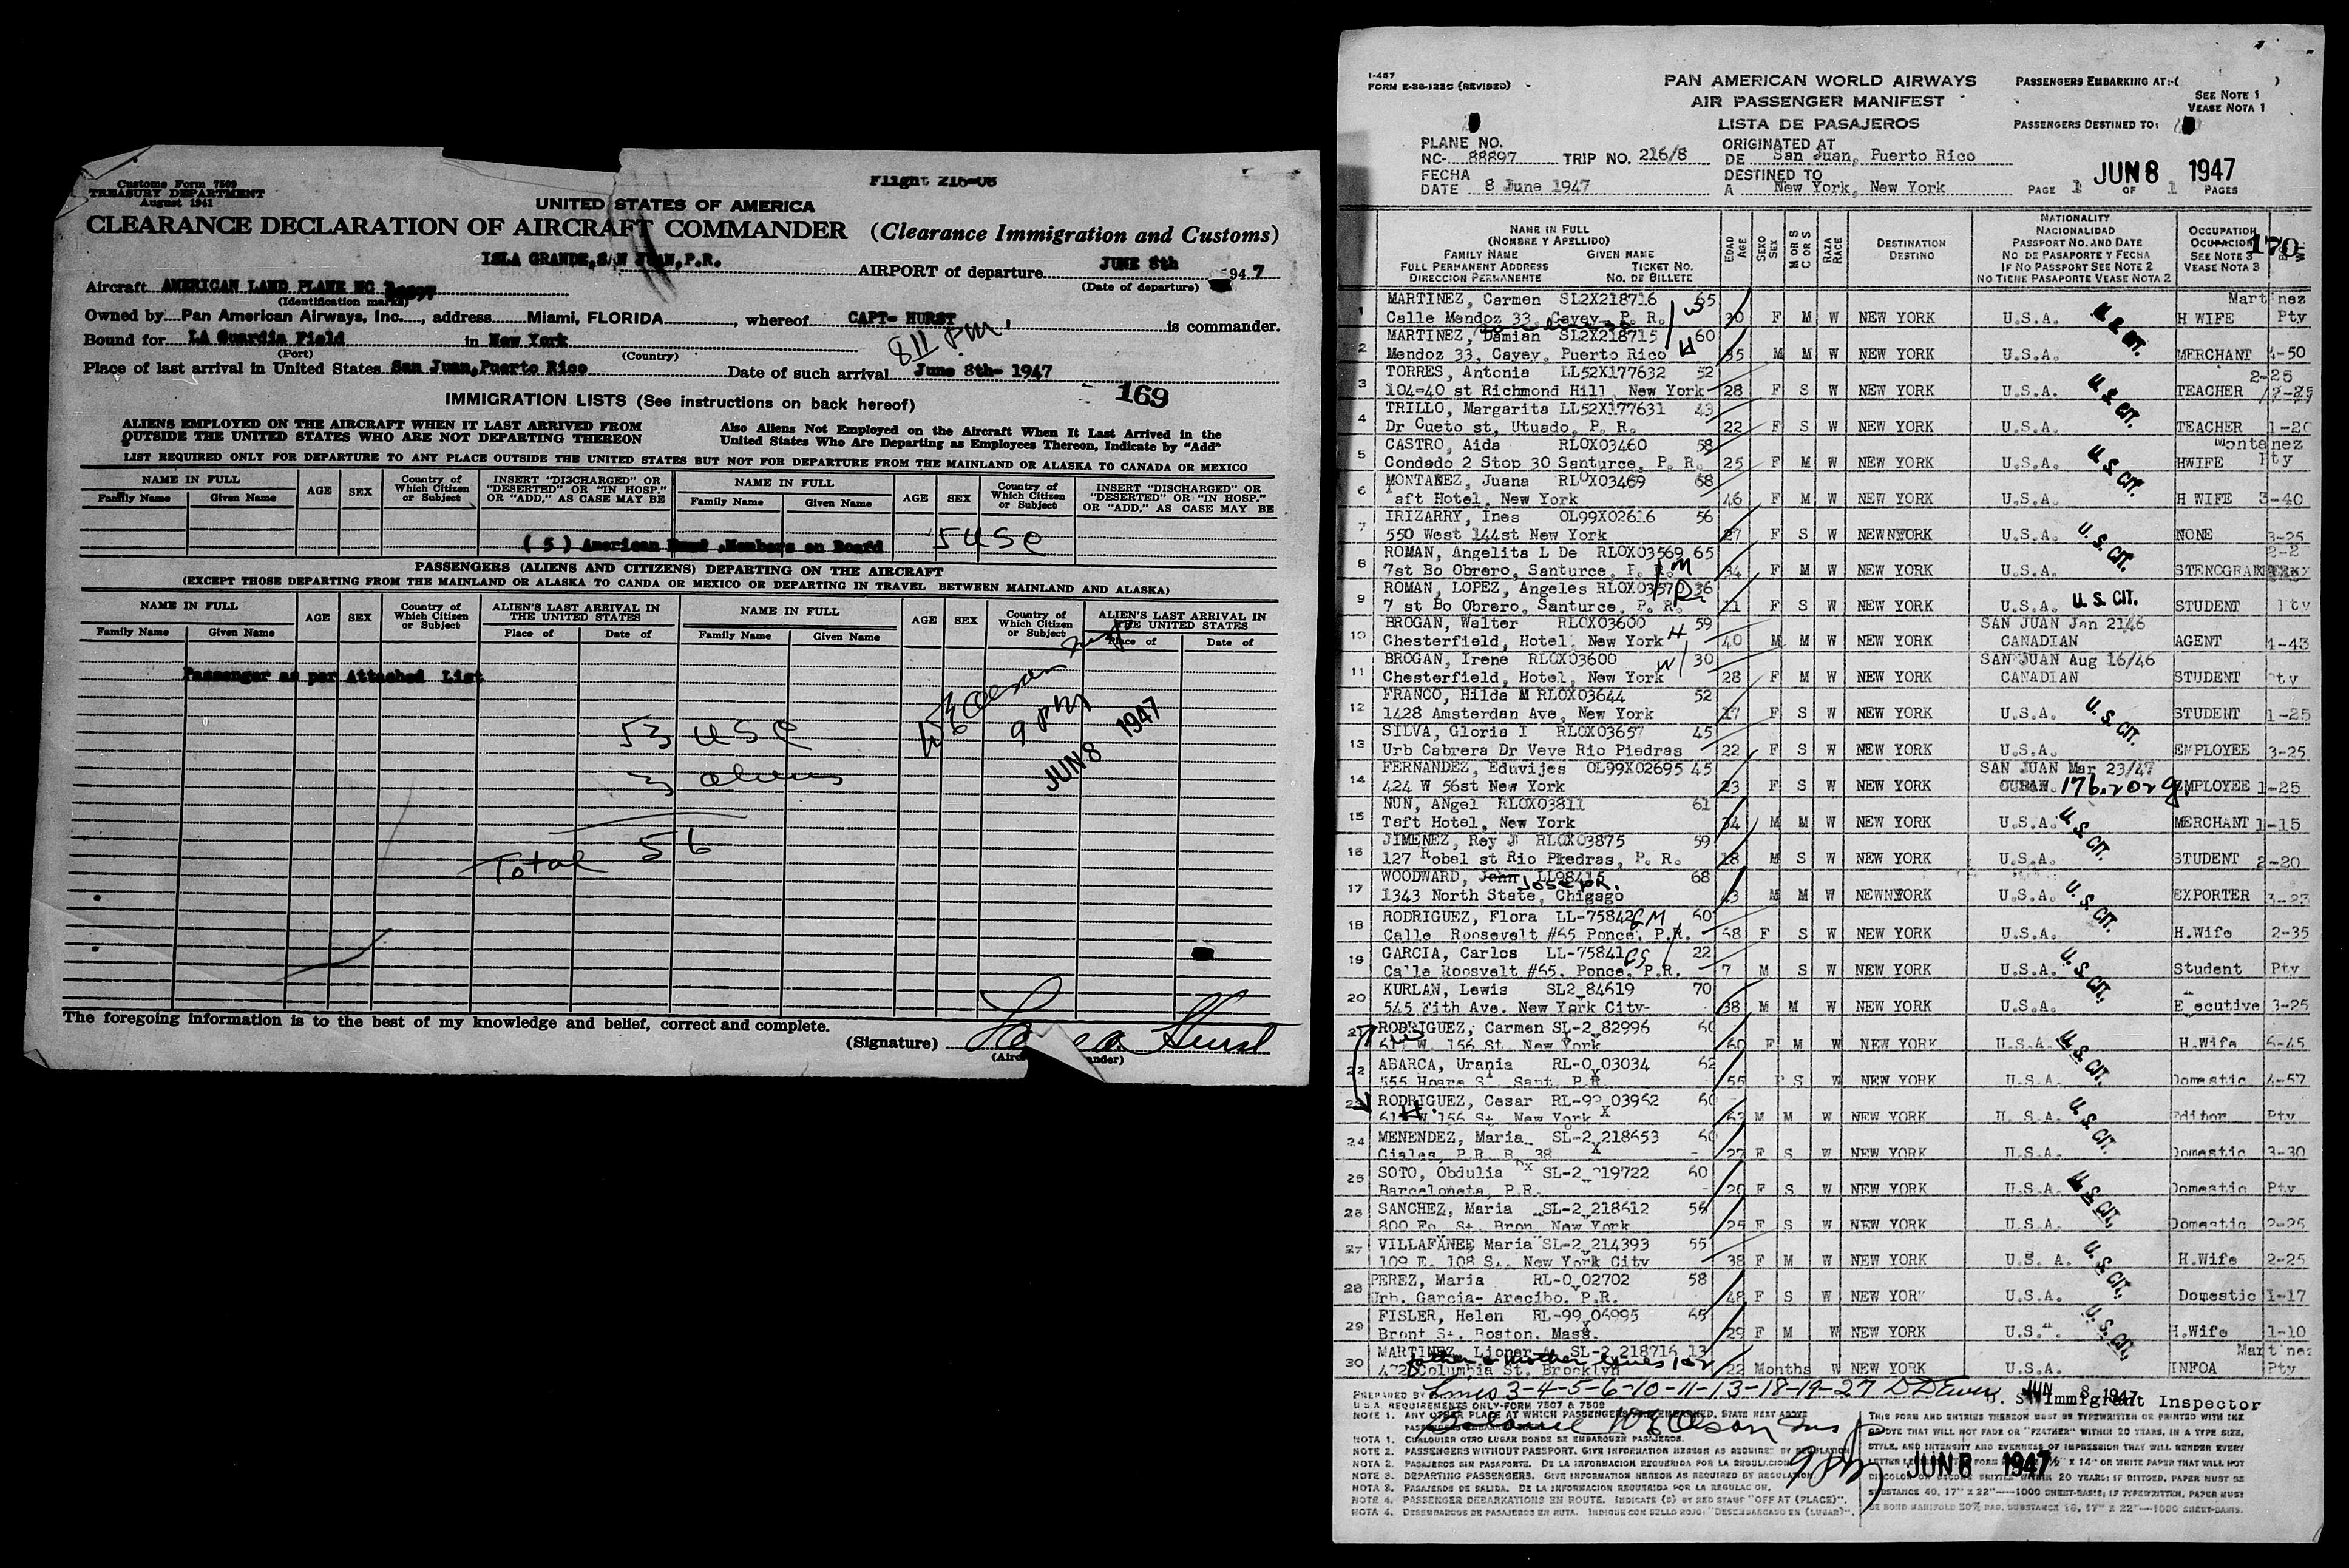 Customs Form 7509
TREASURY DEPARTMENT
August 1941
Flight 216-08
UNITED STATES OF AMERICA
CLEARANCE DECLARATION OF AIRCRAFT COMMANDER (Clearance Immigration and Customs)
ISLA GRANDE, SAN JUAN, P.R. AIRPORT of departure JUNE 8th 1947
(Date of departure)
Aircraft AMERICAN LAND PLANE NC
(Identification marks)
Owned by Pan American Airways, Inc., address Miami, FLORIDA, whereof CAPT- HURST is commander.
Bound for LA Guardia Field in New York
(Port) (Country)
811 PM
Place of last arrival in United States San Juan, Puerto Rico Date of such arrival June 8th- 1947
169
IMMIGRATION LISTS (See instructions on back hereof)
ALIENS EMPLOYED ON THE AIRCRAFT WHEN IT LAST ARRIVED FROM OUTSIDE THE UNITED STATES WHO ARE NOT DEPARTING THEREON
Also Aliens Not Employed on the Aircraft When It Last Arrived in the United States Who Are Departing as Employees Thereon, Indicate by "Add"
LIST REQUIRED ONLY FOR DEPARTURE TO ANY PLACE OUTSIDE THE UNITED STATES BUT NOT FOR DEPARTURE FROM THE MAINLAND OR ALASKA TO CANADA OR MEXICO
NAME IN FULL AGE SEX Country of Which Citizen or Subject INSERT "DISCHARGED" OR "DESERTED" OR "IN HOSP." OR "ADD," AS CASE MAY BE NAME IN FULL AGE SEX Country of Which Citizen or Subject INSERT "DISCHARGED" OR "DESERTED" OR "IN HOSP." OR "ADD," AS CASE MAY BE
Family Name Given Name Family Name Given Name
( 5 ) American Members on Board 5 USC
PASSENGERS (ALIENS AND CITIZENS) DEPARTING ON THE AIRCRAFT
(EXCEPT THOSE DEPARTING FROM THE MAINLAND OR ALASKA TO CANDA OR MEXICO OR DEPARTING IN TRAVEL BETWEEN MAINLAND AND ALASKA)
NAME IN FULL AGE SEX Country of Which Citizen or Subject ALIEN'S LAST ARRIVAL IN THE UNITED STATES NAME IN FULL AGE SEX Country of Which Citizen or Subject ALIEN'S LAST ARRIVAL IN THE UNITED STATES
Family Name Given Name Place of Date of Family Name Given Name Place of Date of
Passenger as per Attached List
53 USC
3 aliens
Total 56
9 PM
JUN 8 1947
The foregoing information is to the best of my knowledge and belief, correct and complete.
(Signature) Hurst
I-467
FORM E-38-122C (REVISED)
PAN AMERICAN WORLD AIRWAYS
AIR PASSENGER MANIFEST
LISTA DE PASAJEROS
PASSENGERS EMBARKING AT:-( )
SEE NOTE 1
VEASE NOTA 1
PASSENGERS DESTINED TO:
PLANE NO.
NC- 88897 TRIP NO. 216/8
ORIGINATED AT
DE San Juan, Puerto Rico
FECHA
DATE 8 June 1947
DESTINED TO
A New York, New York
JUN 8 1947
PAGE 1 OF 1 PAGES
NAME IN FULL
(NOMBRE Y APELLIDO)
FAMILY NAME GIVEN NAME
FULL PERMANENT ADDRESS TICKET NO.
DIRECCION PERMANENTE NO. DE BILLETE
EDAD AGE SEXO SEX M OR S C OR S RAZA RACE
DESTINATION
DESTINO
NATIONALITY
NACIONALIDAD
PASSPORT NO. AND DATE
NO DE PASAPORTE Y FECHA
IF NO PASSPORT SEE NOTE 2
NO TIENE PASAPORTE VEASE NOTA 2
OCCUPATION
OCUPACION
SEE NOTE 3
VEASE NOTA 3
170
1 MARTINEZ, Carmen SL2X218716 W 65 Martinez
Calle Mendoz 33, Cayey, P. R. 30 F M W NEW YORK U.S.A. U.S. CIT. H WIFE Pty
2 MARTINEZ, Damian SL2X218715 H 60
Mendoz 33, Cayey, Puerto Rico 35 M M W NEW YORK U.S.A. MERCHANT 4-50
3 TORRES, Antonia LL52X177632 52 2-25
104-40 st Richmond Hill, New York 28 F S W NEW YORK U.S.A. U.S. CIT. TEACHER
4 TRILLO, Margarita LL52X177631 43
Dr Cueto st, Utuado, P. R. 22 F S W NEW YORK U.S.A. TEACHER 1-20
5 CASTRO, Aida RLOX03460 58 Montanez
Condado 2 Stop 30 Santurce, P. R. 25 F M W NEW YORK U.S.A. U.S. CIT. HWIFE Pty
6 MONTANEZ, Juana RLOX03469 68
Taft Hotel, New York 46 F M W NEW YORK U.S.A. H WIFE 3-40
7 IRIZARRY, Ines OL99X02616 56
550 West 144st New York 27 F S W NEWNYORK U.S.A. U.S. CIT. NONE 3-25
8 ROMAN, Angelita L De RLOX03569 65 2-2
7st Bo Obrero, Santurce, P. R. M 34 F M W NEW YORK U.S.A. STENOGRAM
9 ROMAN, LOPEZ, Angeles RLOX0357 D 36
7 st Bo Obrero, Santurce, P. R. 11 F S W NEW YORK U.S.A. U.S. CIT. STUDENT Pty
10 BROGAN, Walter RLOX03600 59 SAN JUAN Jan 2146
Chesterfield, Hotel, New York H 40 M M W NEW YORK CANADIAN AGENT 4-43
11 BROGAN, Irene RLOX03600 30 SAN JUAN Aug 16/46
Chesterfield, Hotel, New York W 28 F M W NEW YORK CANADIAN STUDENT Pty
12 FRANCO, Hilda M RLOX03644 52
1428 Amsterdan Ave, New York 17 F S W NEW YORK U.S.A. U.S. CIT. STUDENT 1-25
13 SILVA, Gloria I RLOX03657 45
Urb Cabrera Dr Veve Rio Piedras 22 F S W NEW YORK U.S.A. EMPLOYEE 3-25
14 FERNANDEZ, Eduvijes OL99X02695 45 SAN JUAN Mar 23/47
424 W 56st New York 23 F S W NEW YORK CUBAN. EMPLOYEE 1-25
15 NUN, ANgel RLOX03811 61
Taft Hotel, New York 34 M M W NEW YORK U.S.A. U.S. CIT. MERCHANT 1-15
16 JIMENEZ, Rey J RLOX03875 59
127 Robel st Rio Piedras, P. R. 18 M S W NEW YORK U.S.A. STUDENT 2-20
17 WOODWARD, John Joseph. LL98415 68
1343 North State, Chigago 43 M M W NEWNYORK U.S.A. U.S. CIT. EXPORTER 3-23
18 RODRIGUEZ, Flora LL-75842 GM 60
Calle Roosevelt #65 Ponce, P.R. 68 F S W NEW YORK U.S.A. H.Wife 2-35
19 GARCIA, Carlos LL-75841 GS 22
Calle Roosvelt #65. Ponce, P.R. 7 M S W NEW YORK U.S.A. U.S. CIT. Student Pty
20 KURLAN, Lewis SL2 84619 70
545 Fith Ave. New York City- 38 M M W NEW YORK U.S.A. Executive 3-25
21 RODRIGUEZ, Carmen SL-2 82996 60
611 W. 156 St. New York 60 F M W NEW YORK U.S.A. U.S. CIT. H.Wife 6-45
22 ABARCA, Urania RL-0 03034 62
555 Hoare St Sant. P.R. 55 F S W NEW YORK U.S.A. Domestic 4-57
23 RODRIGUEZ, Cesar RL-99 03962 60
611 W 156 St. New York 63 M M W NEW YORK U.S.A. U.S. CIT. Editor Pty
24 MENENDEZ, Maria SL-2 218653 50
Ciales, P.R. B 38 27 F S W NEW YORK U.S.A. Domestic 3-30
25 SOTO, Obdulia SL-2 219722 60
Barceloneta, P.R. 20 F S W NEW YORK U.S.A. U.S. CIT. Domestic Pty
26 SANCHEZ, Maria SL-2 218612 55
800 Fo. St. Bron New York 25 F S W NEW YORK U.S.A. Domestic 2-25
27 VILLAFANEE Maria SL-2 214393 55
109 E. 108 S. New York City 38 F M W NEW YORK U.S.A. U.S. CIT. H.Wife 2-25
28 PEREZ, Maria RL-0 02702 58
Urb. Garcia- Arecibo. P.R. 48 F S W NEW YORK U.S.A. Domestic 1-17
29 FISLER, Helen RL-99 06995 65
Bront St. Boston. Mass. 29 F M W NEW YORK U.S.A. U.S. CIT. H.Wife 1-10
30 MARTINEZ, Lionar A. SL-2 218716 13 Martinez
father & mother lines 1 & 2
472 Columbia St. Brooklyn 22 Months W NEW YORK U.S.A. INFOA Pty
PREPARED BY Lines 3-4-5-6-10-11-13-18-19-27 JUN 8 1947
U. S. Immigrant Inspector
U.S.A. REQUIREMENTS ONLY-FORM 7507 & 7509
NOTE 1. ANY OTHER PLACE AT WHICH PASSENGERS EMBARKED, STATE NEXT ABOVE
NOTA 1. CUALQUIER OTRO LUGAR DONDE SE EMBARQUEN PASAJEROS.
NOTE 2. PASSENGERS WITHOUT PASSPORT. GIVE INFORMATION HEREON AS REQUIRED BY REGULATION
NOTA 2. PASAJEROS SIN PASAPORTE. DE LA INFORMACION REQUERIDA POR LA REGULACION
NOTE 3. DEPARTING PASSENGERS. GIVE INFORMATION HEREON AS REQUIRED BY REGULATION.
NOTA 3. PASAJEROS DE SALIDA. DE LA INFORMACION REQUERIDA POR LA REGULACION.
NOTE 4. PASSENGER DEBARKATIONS EN ROUTE. INDICATE (S) BY RED STAMP "OFF AT (PLACE)".
NOTA 4. DESEMBARCOS DE PASAJEROS EN RUTA. INDIQUE CON SELLO ROJO: "DESEMBARCADO EN (LUGAR)".
9 PM
JUN 8 1947
THIS FORM AND ENTRIES THEREON MUST BE TYPEWRITTEN OR PRINTED WITH INK
OR DYE THAT WILL NOT FADE OR "FEATHER" WITHIN 20 YEARS, IN A TYPE SIZE,
STYLE, AND INTENSITY AND EVENNESS OF IMPRESSION THAT WILL RENDER EVERY
X 14" OR WHITE PAPER THAT WILL NOT
20 YEARS; IF DITTOED, PAPER MUST BE
SUBSTANCE 40, 17" X 22"—1000 SHEET-BASIS; IF TYPEWRITTEN, PAPER MUST
BE BOND MANIFOLD 50% RAG, SUBSTANCE 16, 17" X 22"—1000 SHEET-BASIS.